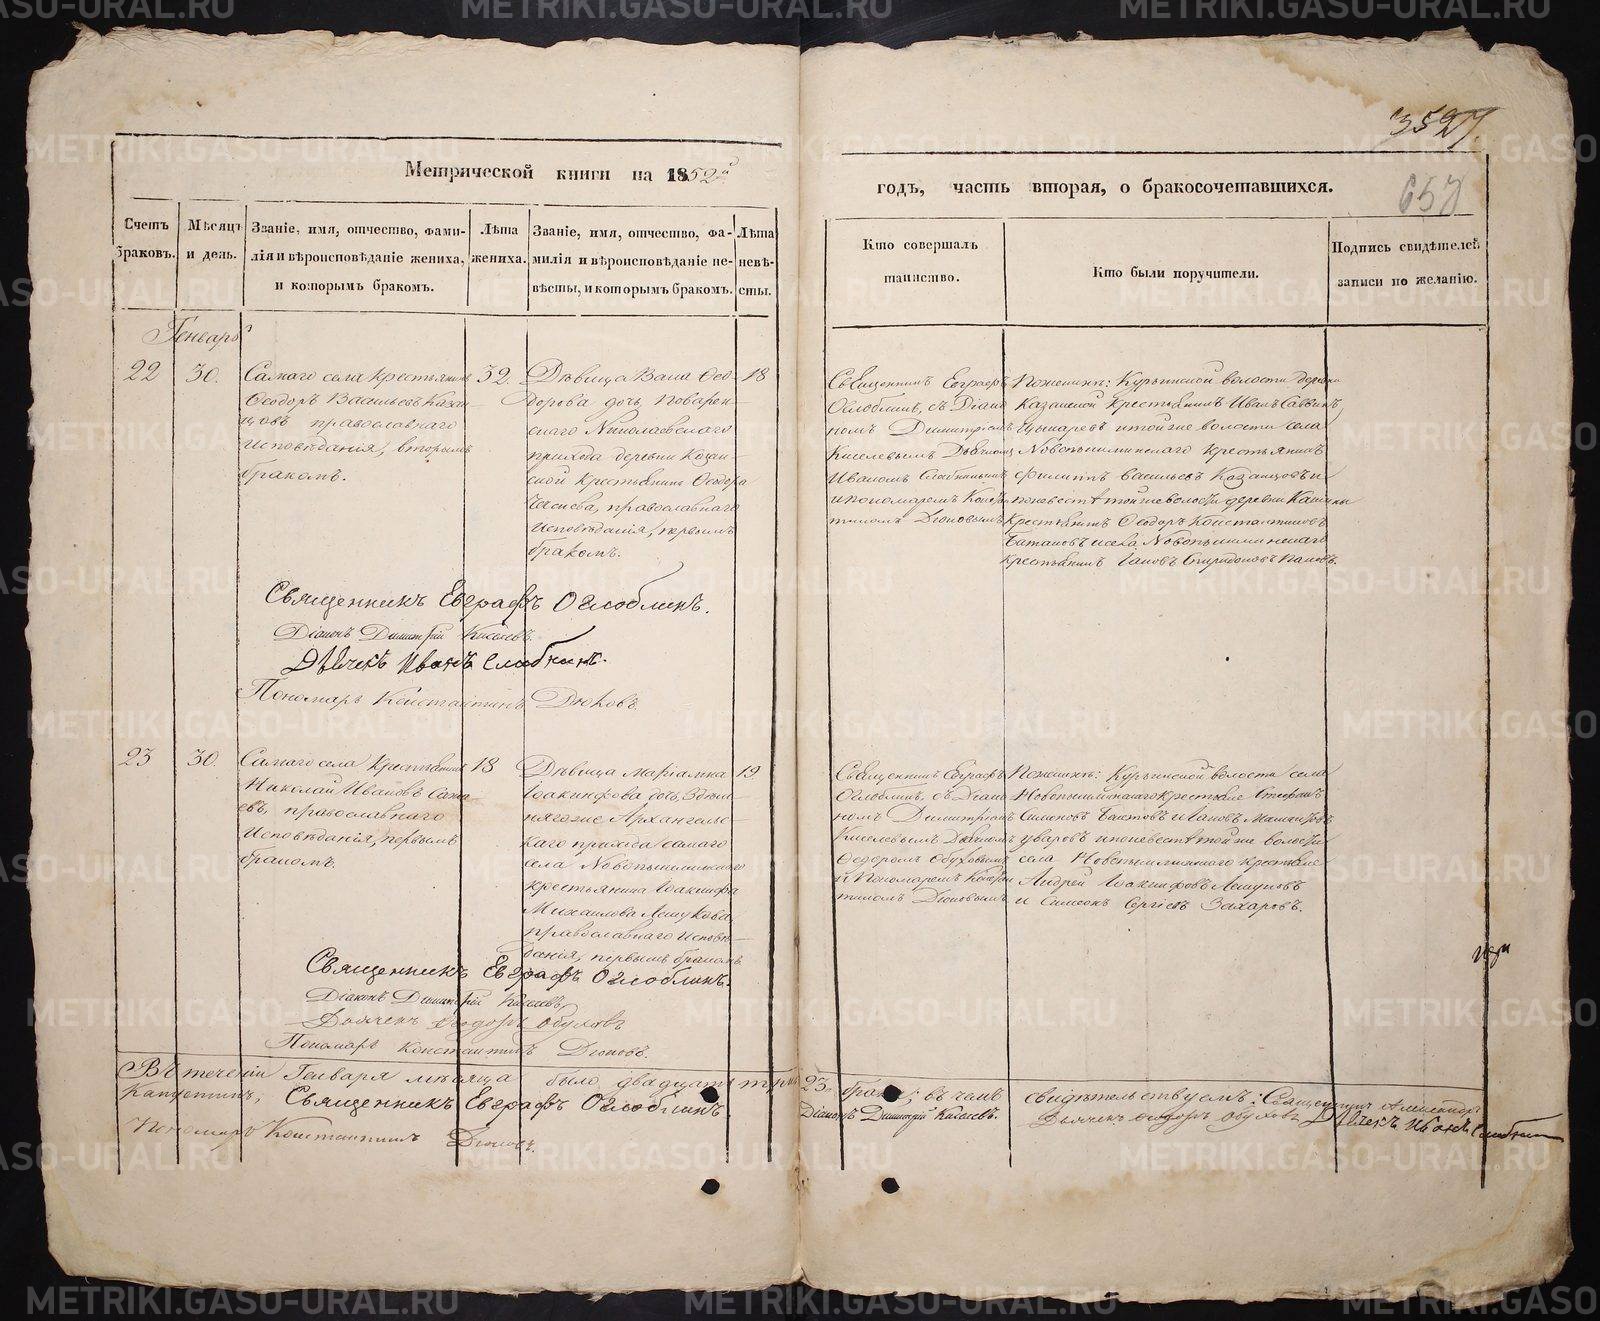 3527.
657
Метрической книги на 1852й
годъ, часть вторая, о бракосочетавшихся.
Счетъ браковъ.
Мѣсяцъ и день.
Званіе, имя, отчество, фами-
лія и вѣроисповѣданіе жениха,
и которымъ бракомъ.
Лѣта жениха.
Званіе, имя, отчество, фа-
милія и вѣроисповѣданіе не-
вѣсты, и которымъ бракомъ.
Лѣта невѣ-
сты.
Кто совершалъ
таинство.
Кто были поручители.
Подпись свидѣтелей
записи по желанію.
Генварь
22
30.
Самаго села крестьянинъ
Ѳеодоръ Васильевъ Казан-
цовъ православнаго
исповѣданія, вторымъ
бракомъ.
32.
Дѣвица Ѳео-
дорова дочь, Поварен-
скаго Николаевскаго
прихода деревни Казан-
ской крестьянина Ѳеодора
православнаго
исповѣданія, первымъ
бракомъ.
18
Священникъ Евграфъ
Оглоблинъ, съ Діако-
номъ Димитріемъ
Киселевымъ Дьячкомъ
Иваномъ
и пономаремъ Констан-
тиномъ Дюковымъ
По женихѣ: Курьинской волости деревни
Казанской крестьянинъ Иванъ Саввинъ
и той же волости села
Новопышминскаго крестьянинъ
Филиппъ Васильевъ Казанцовъ и
по невестѣ той же волости деревни
крестьянинъ Ѳеодоръ Константиновъ
и села Новопышминскаго
крестьянинъ Іаковъ Спиридоновъ
Священникъ Евграфъ Оглоблинъ.
Діаконъ Димитрій Киселевъ.
Дьячекъ Иванъ
Пономарь Константинъ Дюковъ.
23
30.
Самаго села крестьянинъ
Николай Ивановъ
православнаго
исповѣданія, первымъ
бракомъ.
18
Дѣвица Маріамна
Іоакинфова дочь, здѣш-
няго же Архангельс-
каго прихода самаго
села Новопышминскаго
крестьянина Іоакинфа
Михаилова Лешукова,
православнаго исповѣ-
данія, первымъ бракомъ.
19
Священникъ Евграфъ
Оглоблинъ, съ Діако-
номъ Димитріемъ
Киселевымъ Дьячкомъ
Ѳедоромъ Обуховымъ
и Пономаремъ Констан-
тиномъ Дюковымъ
По женихѣ: Курьинской волости села
Новопышминскаго крестьяне Стефанъ
Симоновъ
и по невестѣ той же волости
села Новопышминскаго крестьяне
Андрей Іоакинфовъ Лешуковъ
и Симеонъ Сергіевъ Захаровъ.
Священникъ Евграфъ Оглоблинъ.
Діаконъ Димитрій Киселевъ
Дьячекъ Ѳеодоръ Обуховъ
Пономарь Константинъ Дюковъ.
Въ теченіи Генваря мѣсяца было двадцать три 23. брака; въ чемъ свидѣтельствуемъ: Священникъ Александръ
Священникъ Евграфъ Оглоблинъ. Діаконъ Димитрій Киселевъ. Дьячекъ Ѳеодоръ Обуховъ Дьячекъ Иванъ
Пономарь Константинъ Дюковъ.
METRIKI.GASO-URAL.RU